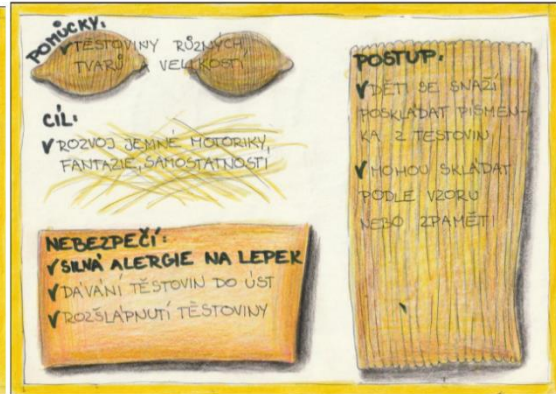 POMŮCKY:
✓ TĚSTOVINY RŮZNÝCH
TVARŮ A VELIKOSTÍ
CÍL:
✓ ROZVOJ JEMNÉ MOTORIKY,
FANTAZIE, SAMOSTATNOSTI
NEBEZPEČÍ:
✓ SILNÁ ALERGIE NA LEPEK
✓ DÁVÁNÍ TĚSTOVIN DO ÚST
✓ ROZŠLÁPNUTÍ TĚSTOVINY
POSTUP:
✓ DĚTI SE SNAŽÍ
POSKLÁDAT PÍSMEN-
KA Z TĚSTOVIN
✓ MOHOU SKLÁDAT
PODLE VZORU
NEBO ZPAMĚTI